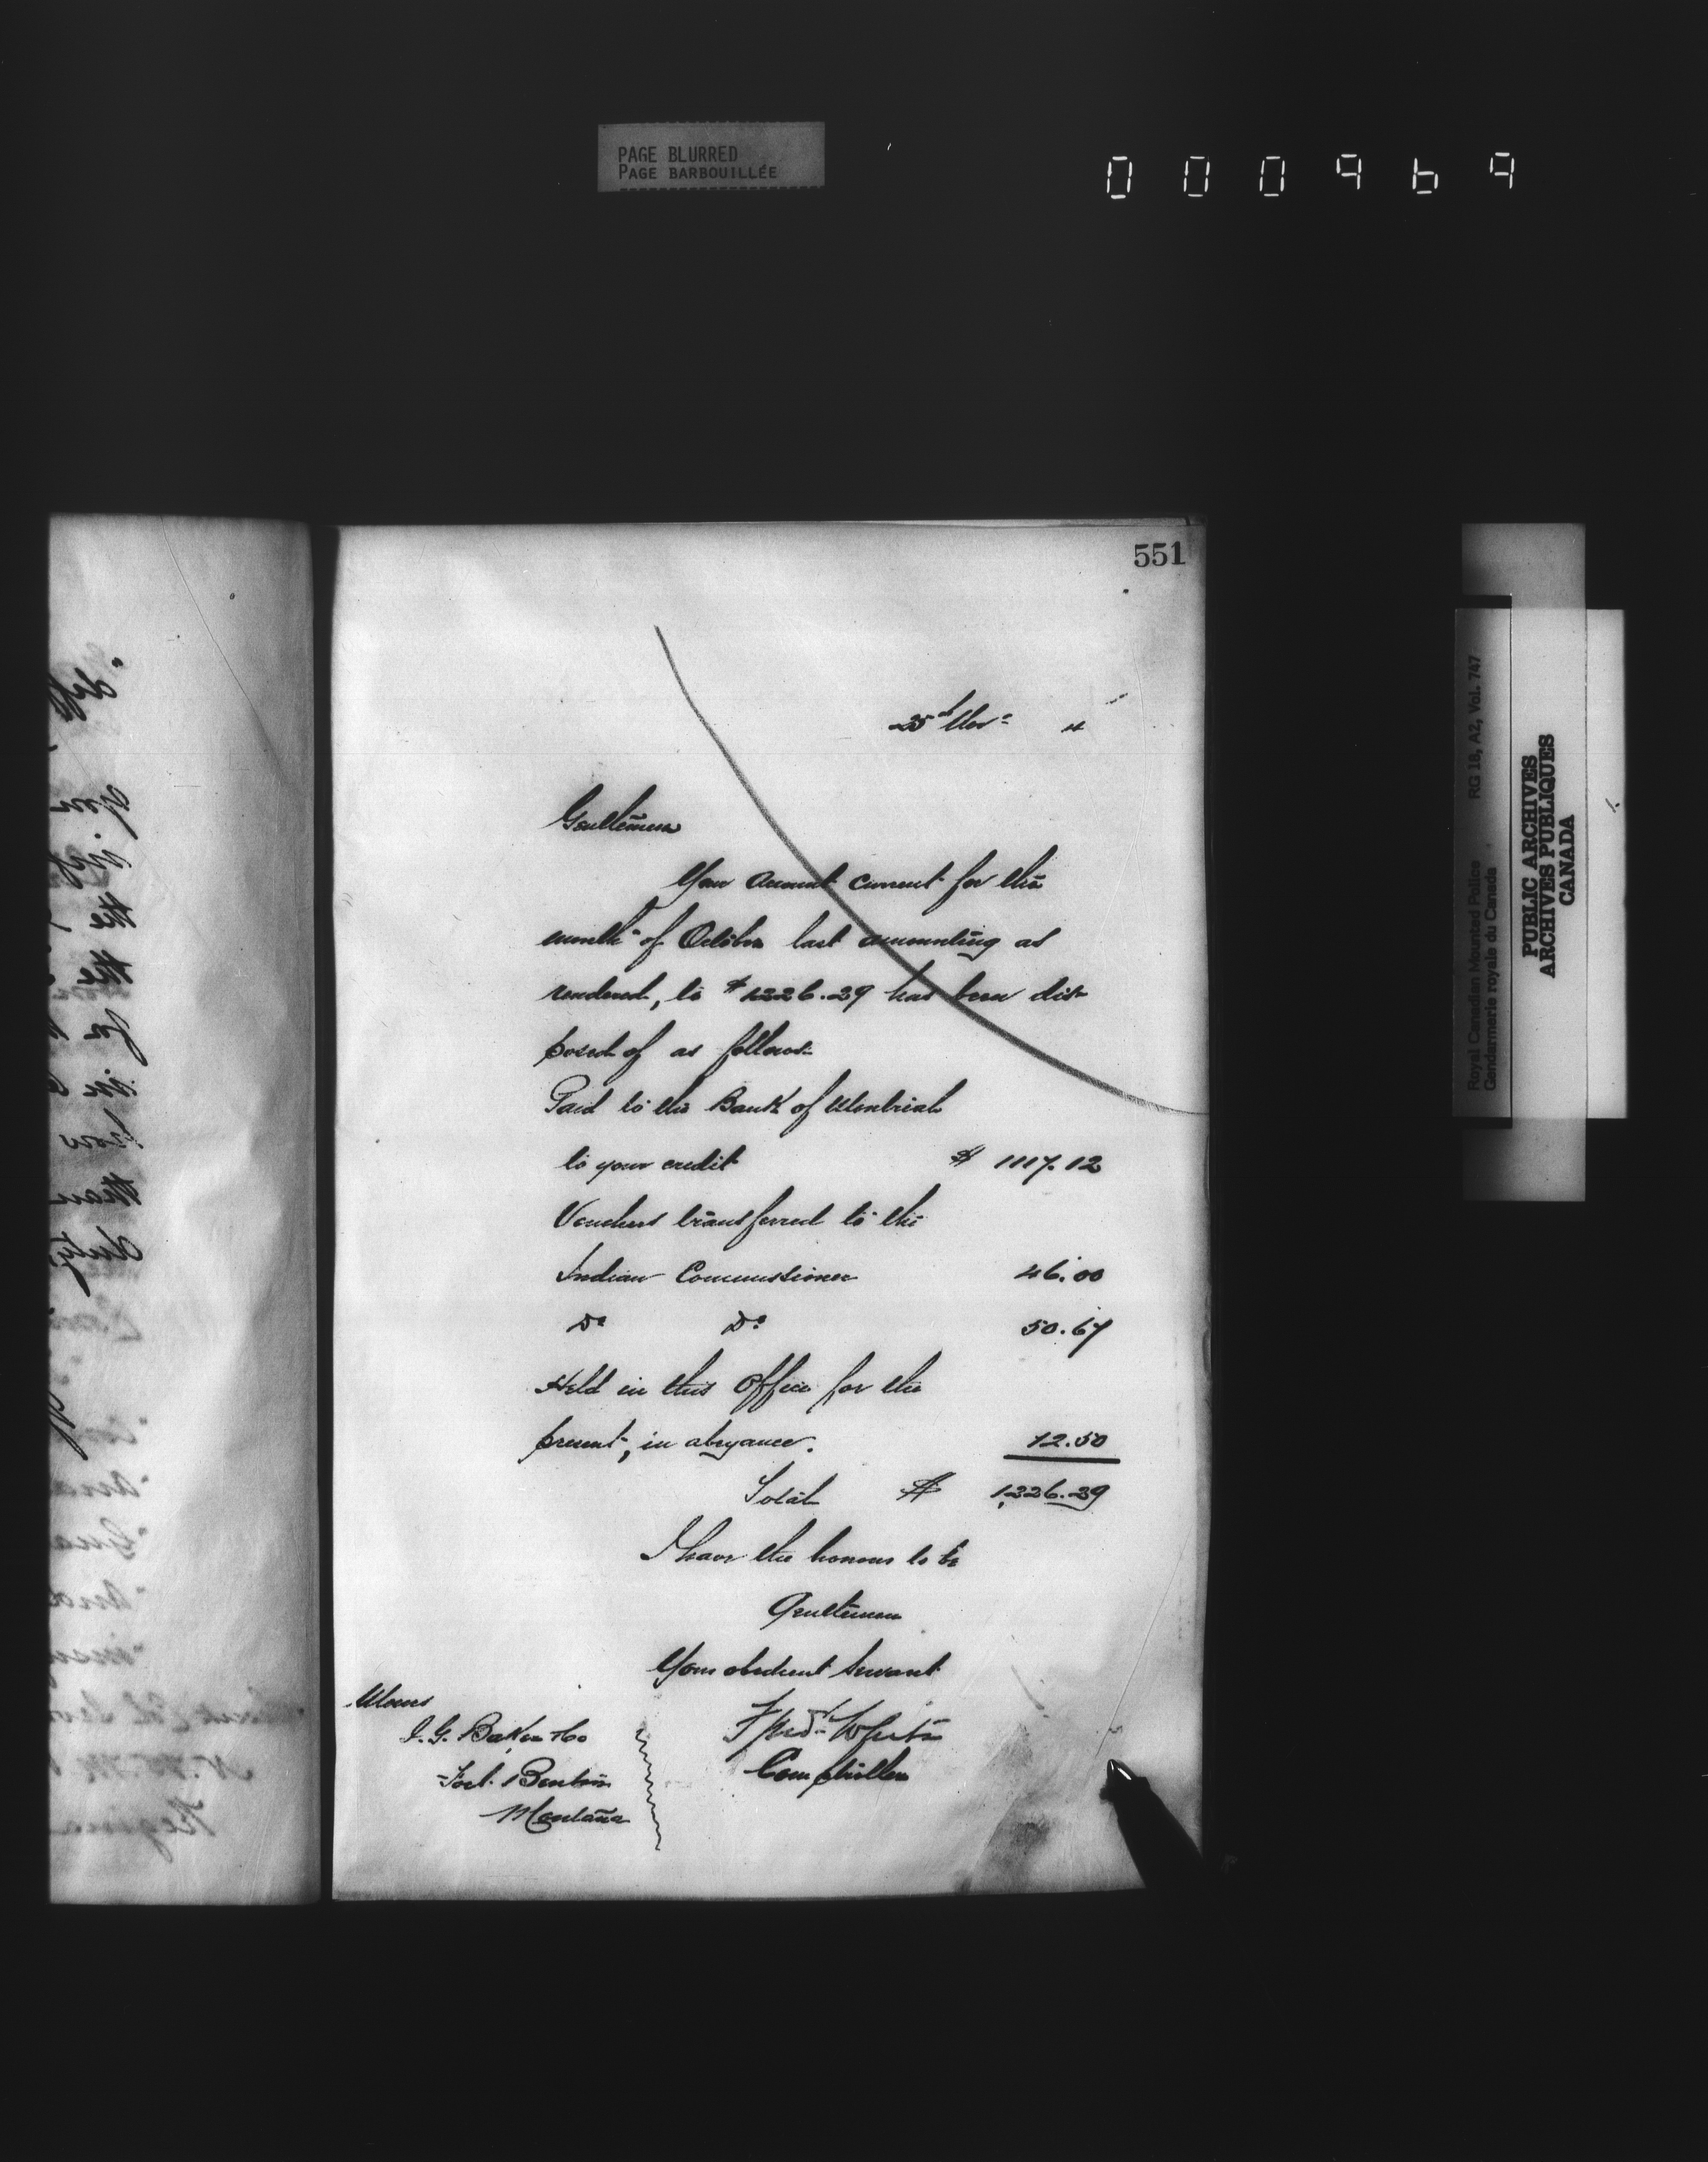 PAGE BLURRED
PAGE BARBOUILLÉE
000969
551
25th Nov: 4
Gentlemen
Your Account Current for the
month of October last amounting as
rendered, to $1226.29 has been dis-
posed of as follows:
Paid to the Bank of Montreal
to your credit $ 1117.12
Vouchers transferred to the
Indian Commissioner 46.00
Do Do 50.67
Held in this Office for the
present, in abeyance. 12.50
Total $ 1,226.29
I have the honour to be
Gentlemen
Your obedient Servant
Fred. White
Comptroller
Messrs
I. G. Baker & Co
Fort Benton
Montana
Royal Canadian Mounted Police RG 18, A2, Vol. 747
Gendarmerie royale du Canada
PUBLIC ARCHIVES
ARCHIVES PUBLIQUES
CANADA